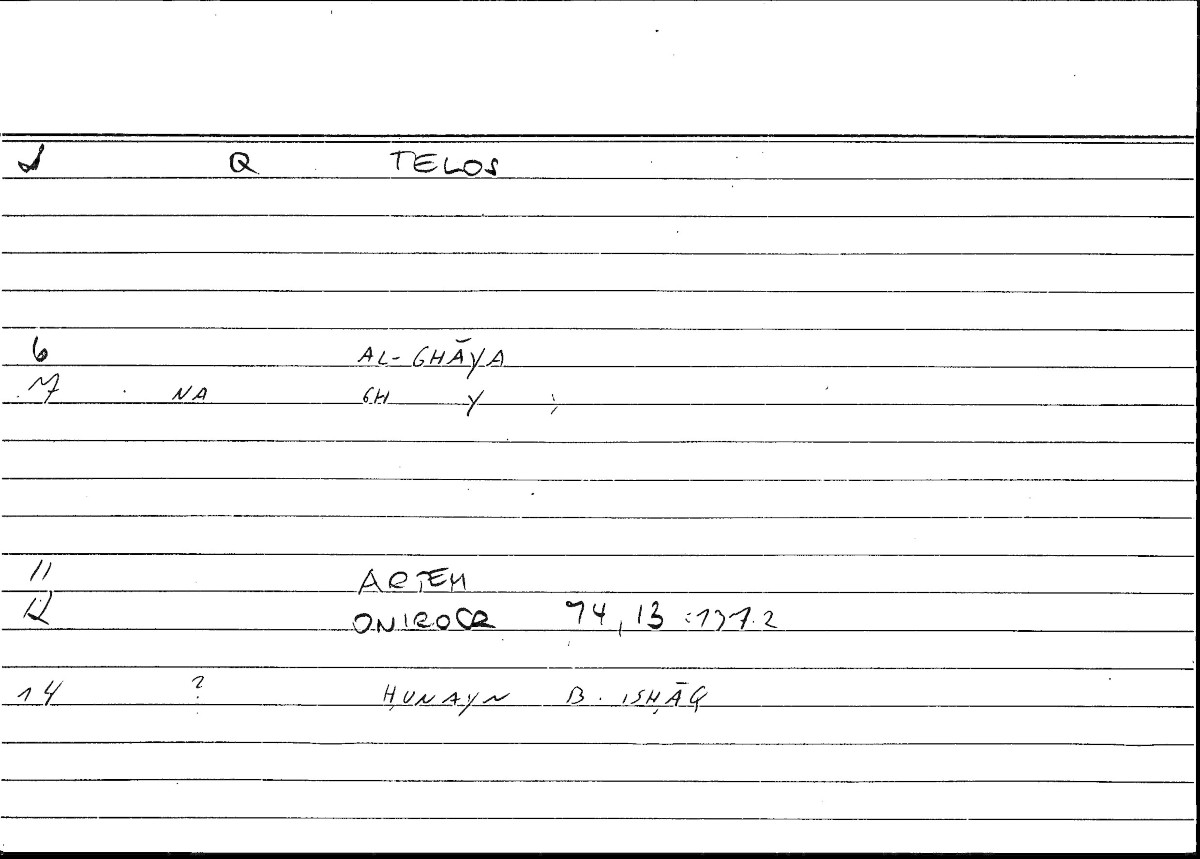 1 Q TELOS
6 AL-GHĀYA
7 NA GH Y ;
11 ARTEM
12 ONIROCR 94,13 :171.2
14 ? ḤUNAYN B. ISḤĀQ